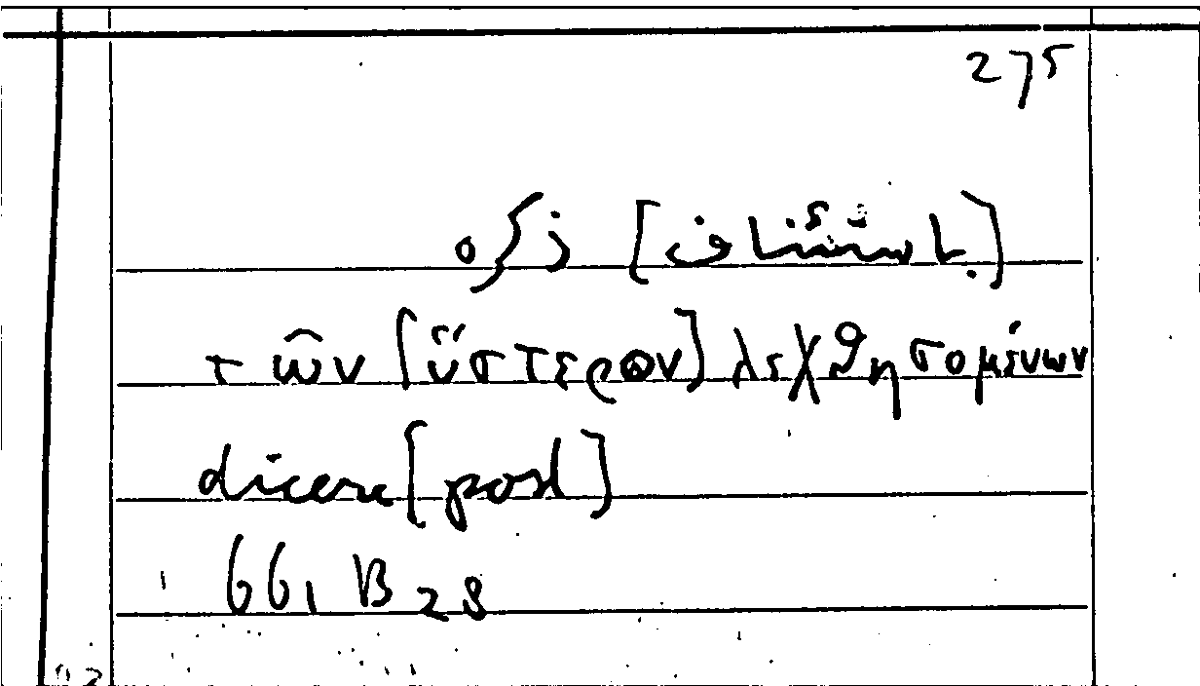 275
[باستئناف] ذكره
τῶν [ὕστερον] λεχθησομένων
dicere [post]
661 B 28